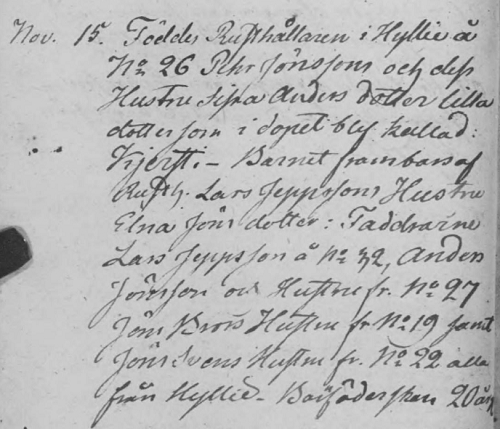 Nov. 15. Föddes Rusthållaren i Hyllie å
No 26 Pehr Jönssons och dess
Hustru Sissa Anders dotter lilla
dotter som i dopet blef kallad:
Kjersti. - Barnet frambars af
Rusth. Lars Jeppssons Hustru
Elna Jöns dotter: Faddrarne
Lars Jeppsson å No 32, Anders
Jönsson och Hustru fr. No 27
Jöns Hustru fr No 19 samt
Jöns Svens Hustru fr. No 22 alla
från Hyllie - Barnföderskan 20 år